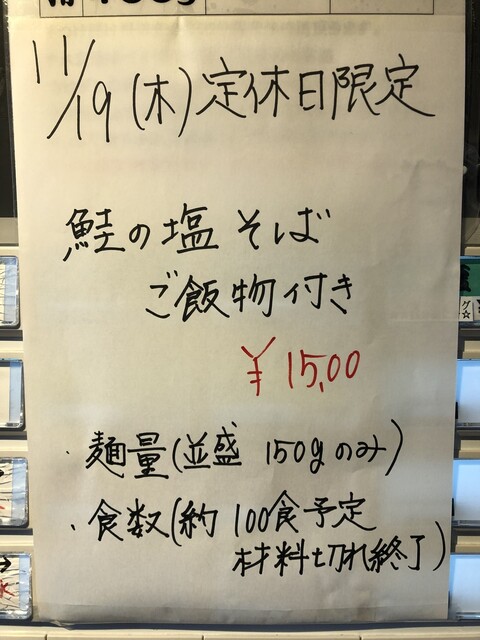 11/19(木)定休日限定
鮭の塩そば
ご飯物付き
¥15,00
・麺量(並盛 150gのみ)
・食数(約 100食予定
材料切れ終了)